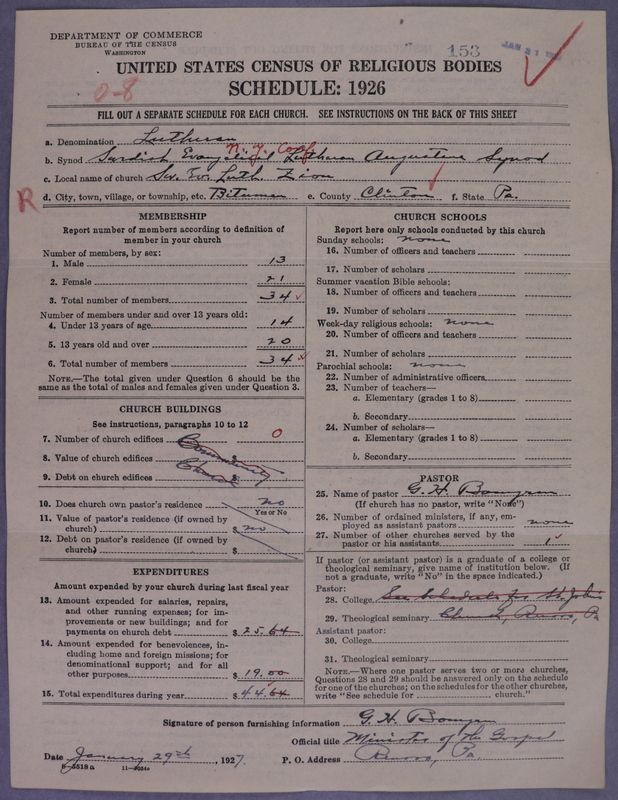 DEPARTMENT OF COMMERCE
BUREAU OF THE CENSUS
WASHINGTON
153
JAN 31
UNITED STATES CENSUS OF RELIGIOUS BODIES
0-8
SCHEDULE: 1926
FILL OUT A SEPARATE SCHEDULE FOR EACH CHURCH. SEE INSTRUCTIONS ON THE BACK OF THIS SHEET
a. Denomination Lutheran
N. Y. Conf.
b. Synod Swedish Evangelical Lutheran Augustana Synod
c. Local name of church Sw. Ev. Luth. Zion
R d. City, town, village, or township, etc. Bitumen e. County Clinton f. State Pa.
MEMBERSHIP
Report number of members according to definition of
member in your church
Number of members, by sex:
1. Male 13
2. Female 21
3. Total number of members 34
Number of members under and over 13 years old:
4. Under 13 years of age 14
5. 13 years old and over 20
6. Total number of members 34
NOTE.—The total given under Question 6 should be
the same as the total of males and females given under Question 3.
CHURCH BUILDINGS
See instructions, paragraphs 10 to 12
7. Number of church edifices 0
Community
8. Value of church edifices $
Church
9. Debt on church edifices $
10. Does church own pastor's residence no
Yes or No
11. Value of pastor's residence (if owned by
church) $ no
12. Debt on pastor's residence (if owned by
church) $
EXPENDITURES
Amount expended by your church during last fiscal year
13. Amount expended for salaries, repairs,
and other running expenses; for im-
provements or new buildings; and for
payments on church debt $ 25.64
14. Amount expended for benevolences, in-
cluding home and foreign missions; for
denominational support; and for all
other purposes $ 19.00
15. Total expenditures during year $ 44.64
CHURCH SCHOOLS
Report here only schools conducted by this church
Sunday schools: none
16. Number of officers and teachers
17. Number of scholars
Summer vacation Bible schools:
18. Number of officers and teachers
19. Number of scholars
Week-day religious schools: none
20. Number of officers and teachers
21. Number of scholars
Parochial schools: none
22. Number of administrative officers
23. Number of teachers—
a. Elementary (grades 1 to 8)
b. Secondary
24. Number of scholars—
a. Elementary (grades 1 to 8)
b. Secondary
PASTOR
25. Name of pastor G. H.
(If church has no pastor, write "None")
26. Number of ordained ministers, if any, em-
ployed as assistant pastors none
27. Number of other churches served by the
pastor or his assistants 1
If pastor (or assistant pastor) is a graduate of a college or
theological seminary, give name of institution below. (If
not a graduate, write "No" in the space indicated.)
Pastor:
28. College See Schedule for St. John
29. Theological seminary Church, Renovo, Pa
Assistant pastor:
30. College
31. Theological seminary
NOTE.—Where one pastor serves two or more churches,
Questions 28 and 29 should be answered only on the schedule
for one of the churches; on the schedules for the other churches,
write "See schedule for church."
Signature of person furnishing information G. H.
Official title Minister of the Gospel
Date January 29th, 1927. P. O. Address Renovo, Pa.